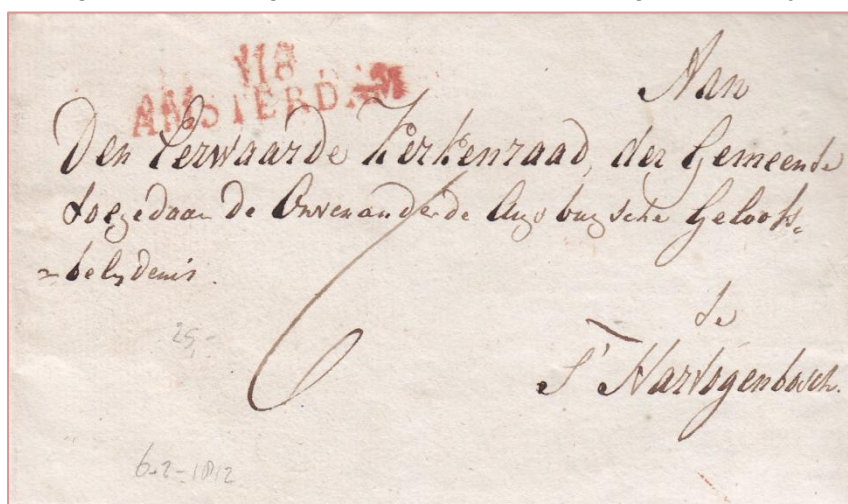 118
AMSTERDAM
Aan
Den Eerwaarde Kerkenraad, der Gemeende
toegedaan De Onveranderde Augsburgsche Geloofs=
=belydenis.
te
S' Hartogenbosch.
6
25,-
6-2-1812